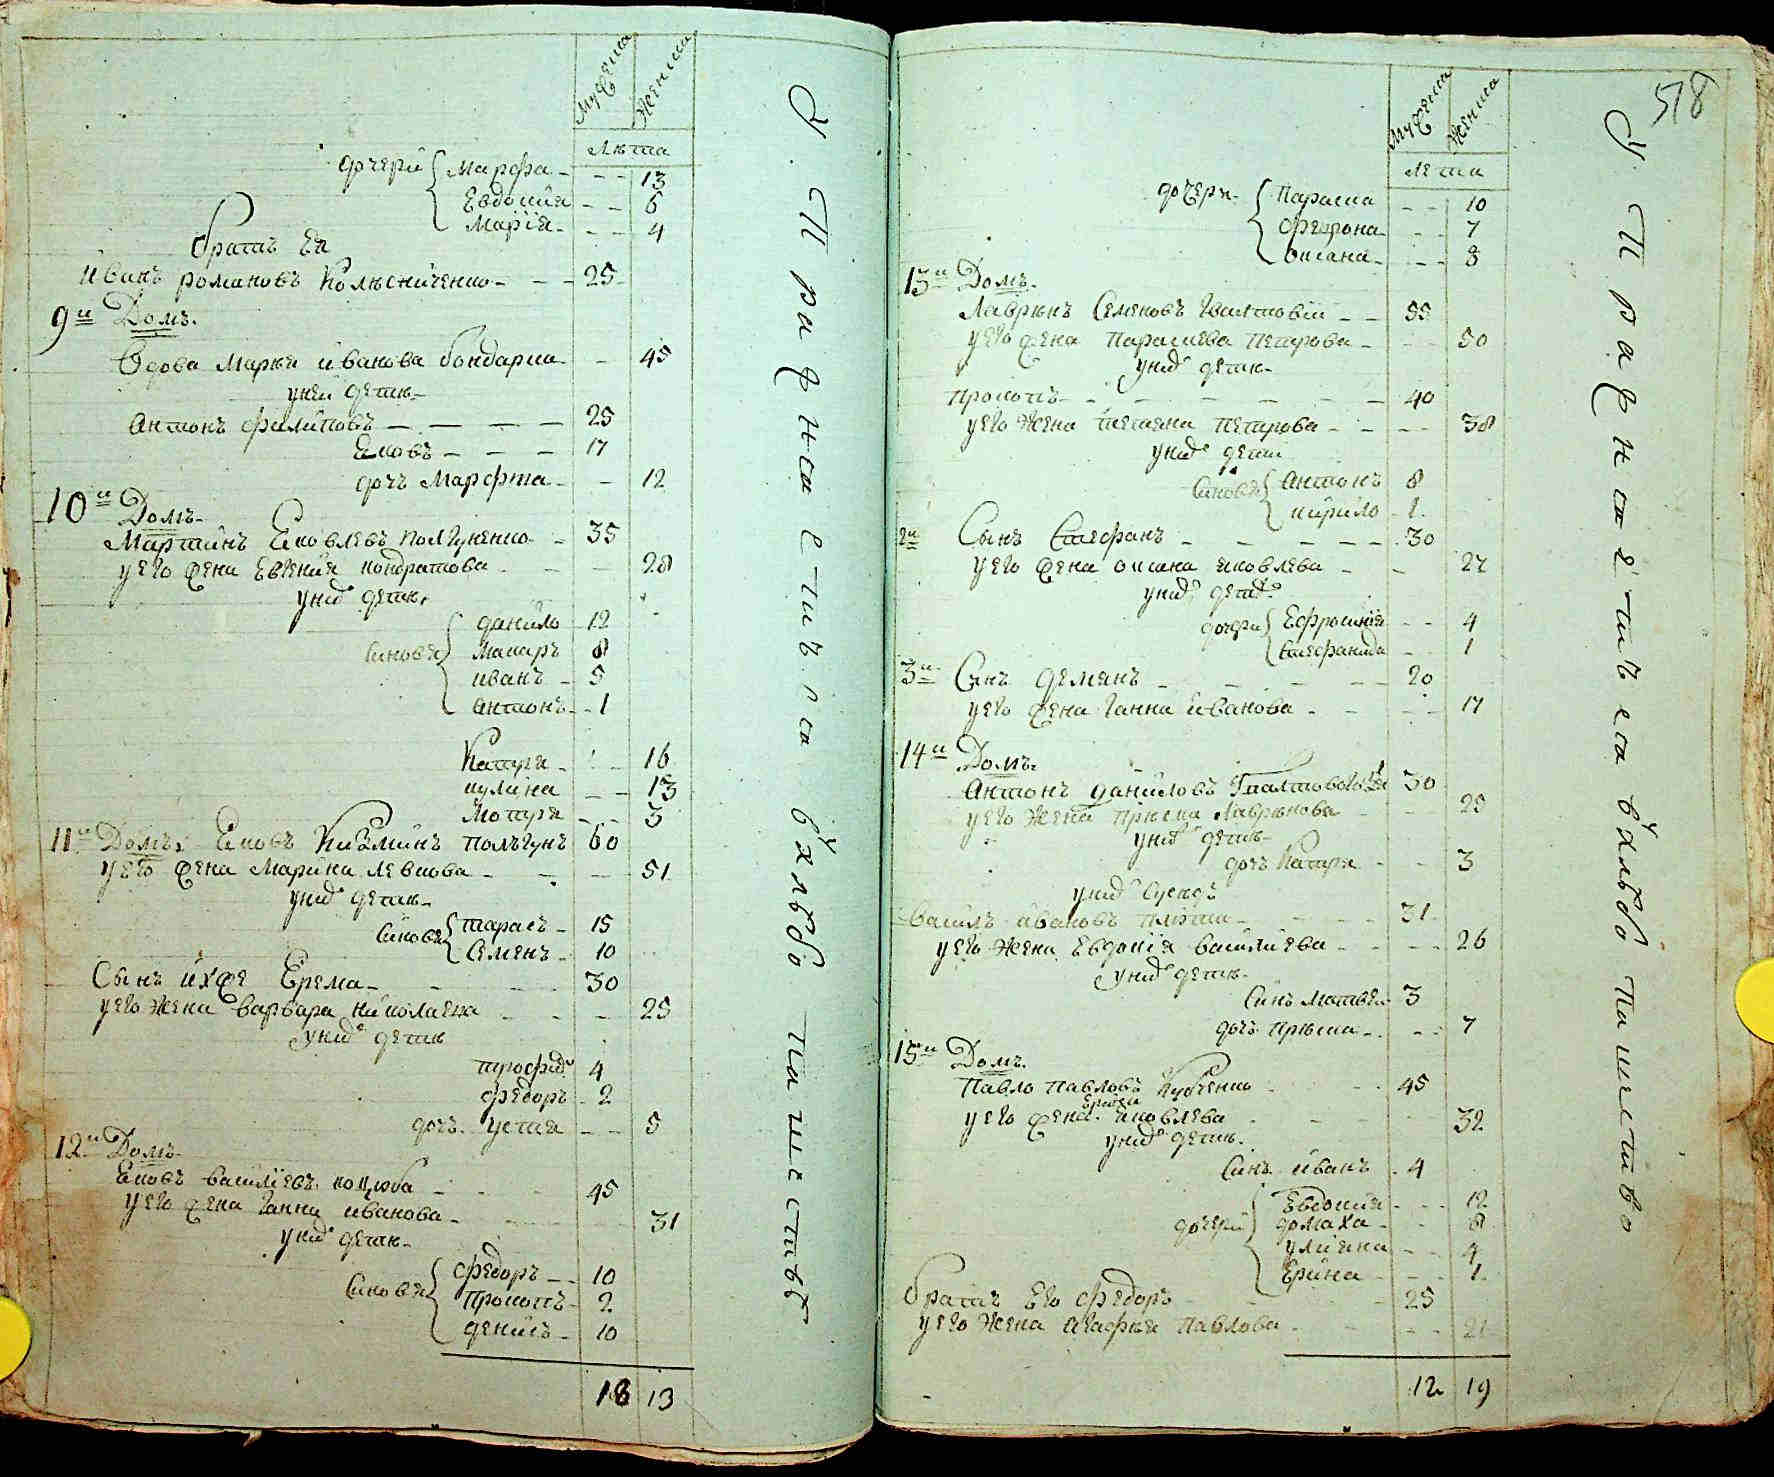 Мужеска Женска
Лѣта
дочери Марфа 13
Евдокия 6
Мария 4
братъ Ея
иванъ романовъ Колѣсниченко 25
9й Домъ.
Вдова Маря иванова бондарка 45
у неи дети
антонъ филиповъ 25
Яковъ 17
дочъ Марфта 12
10й Домъ
Мартинъ Яковлевъ 35
у его жена Евгения кондратова 28
у ниⷯ дети
синовя данило 12
Макаръ 8
иванъ 5
антонъ 1
Катря 16
кулина 13
Мотря 3
11й Домъ Яковъ Кизминъ полѣгунъ 60
у его жена Марина левкова 51
у ниⷯ дети
синовя тарасъ 15
Семенъ 10
Сынъ ихже Ерема 30
у его жена варвара николаева 25
у ниⷯ дети
трофиⷨ 4
федоръ 2
дочъ устия 5
12й Домъ
Яковъ василиевъ коцюба 45
у его жена ганна иванова 31
у ниⷯ дети
синовя федоръ 10
прокопъ 2
денисъ 10
18 13
У Парнка
518
Мужеска Женска
лета
дочери параска 10
феврона 7
оксана 3
13й Домъ
Лаврѣнъ Семеновъ 55
у его жена параскева петрова 50
у ниⷯ дети
прокопъ 40
у его жена татяна петрова 38
у ниⷯ дети
синовя антонъ 8
кирило 1
2й Сынъ Стефанъ 30
у его жена оксана яковлева 27
у ниⷯ дети
дочери Ефросиния 4
стефанида 1
3й Синъ демянъ 20
у его жена ганна иванова 17
14й Домъ
антонъ даниловъ 30
у его жена приска лаврѣнова 25
у ниⷯ дети
дочъ Катря 3
у ниⷯ сусѣдъ
василъ ивановъ 31
у его жена Евдокия василиева 26
у ниⷯ дети
Синъ матвеи 3
дочъ приска 7
15й Домъ
павло павловъ Кубченко 45
у его жена Ерина яковлева 32
у ниⷯ дети
Синъ иванъ 4
дочери Евдокия 12
домаха 8
улияна 4
Ерина 1
братъ Его федоръ 25
у его жена агафия павлова 21
12 19